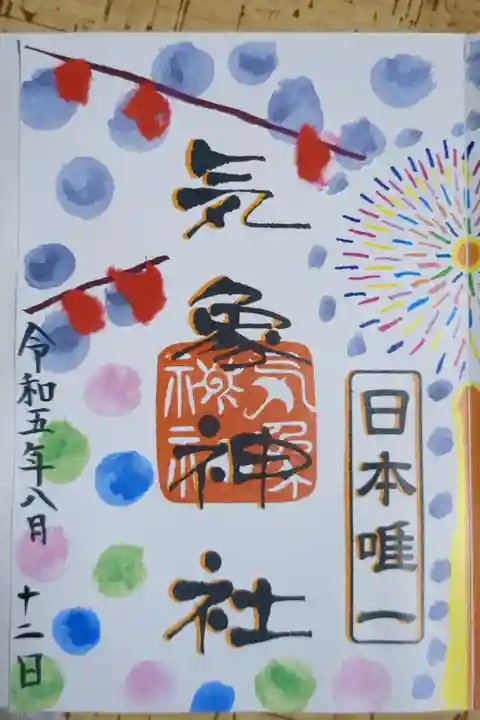 日本唯一
気象神社
気象
神社
令和五年八月十二日